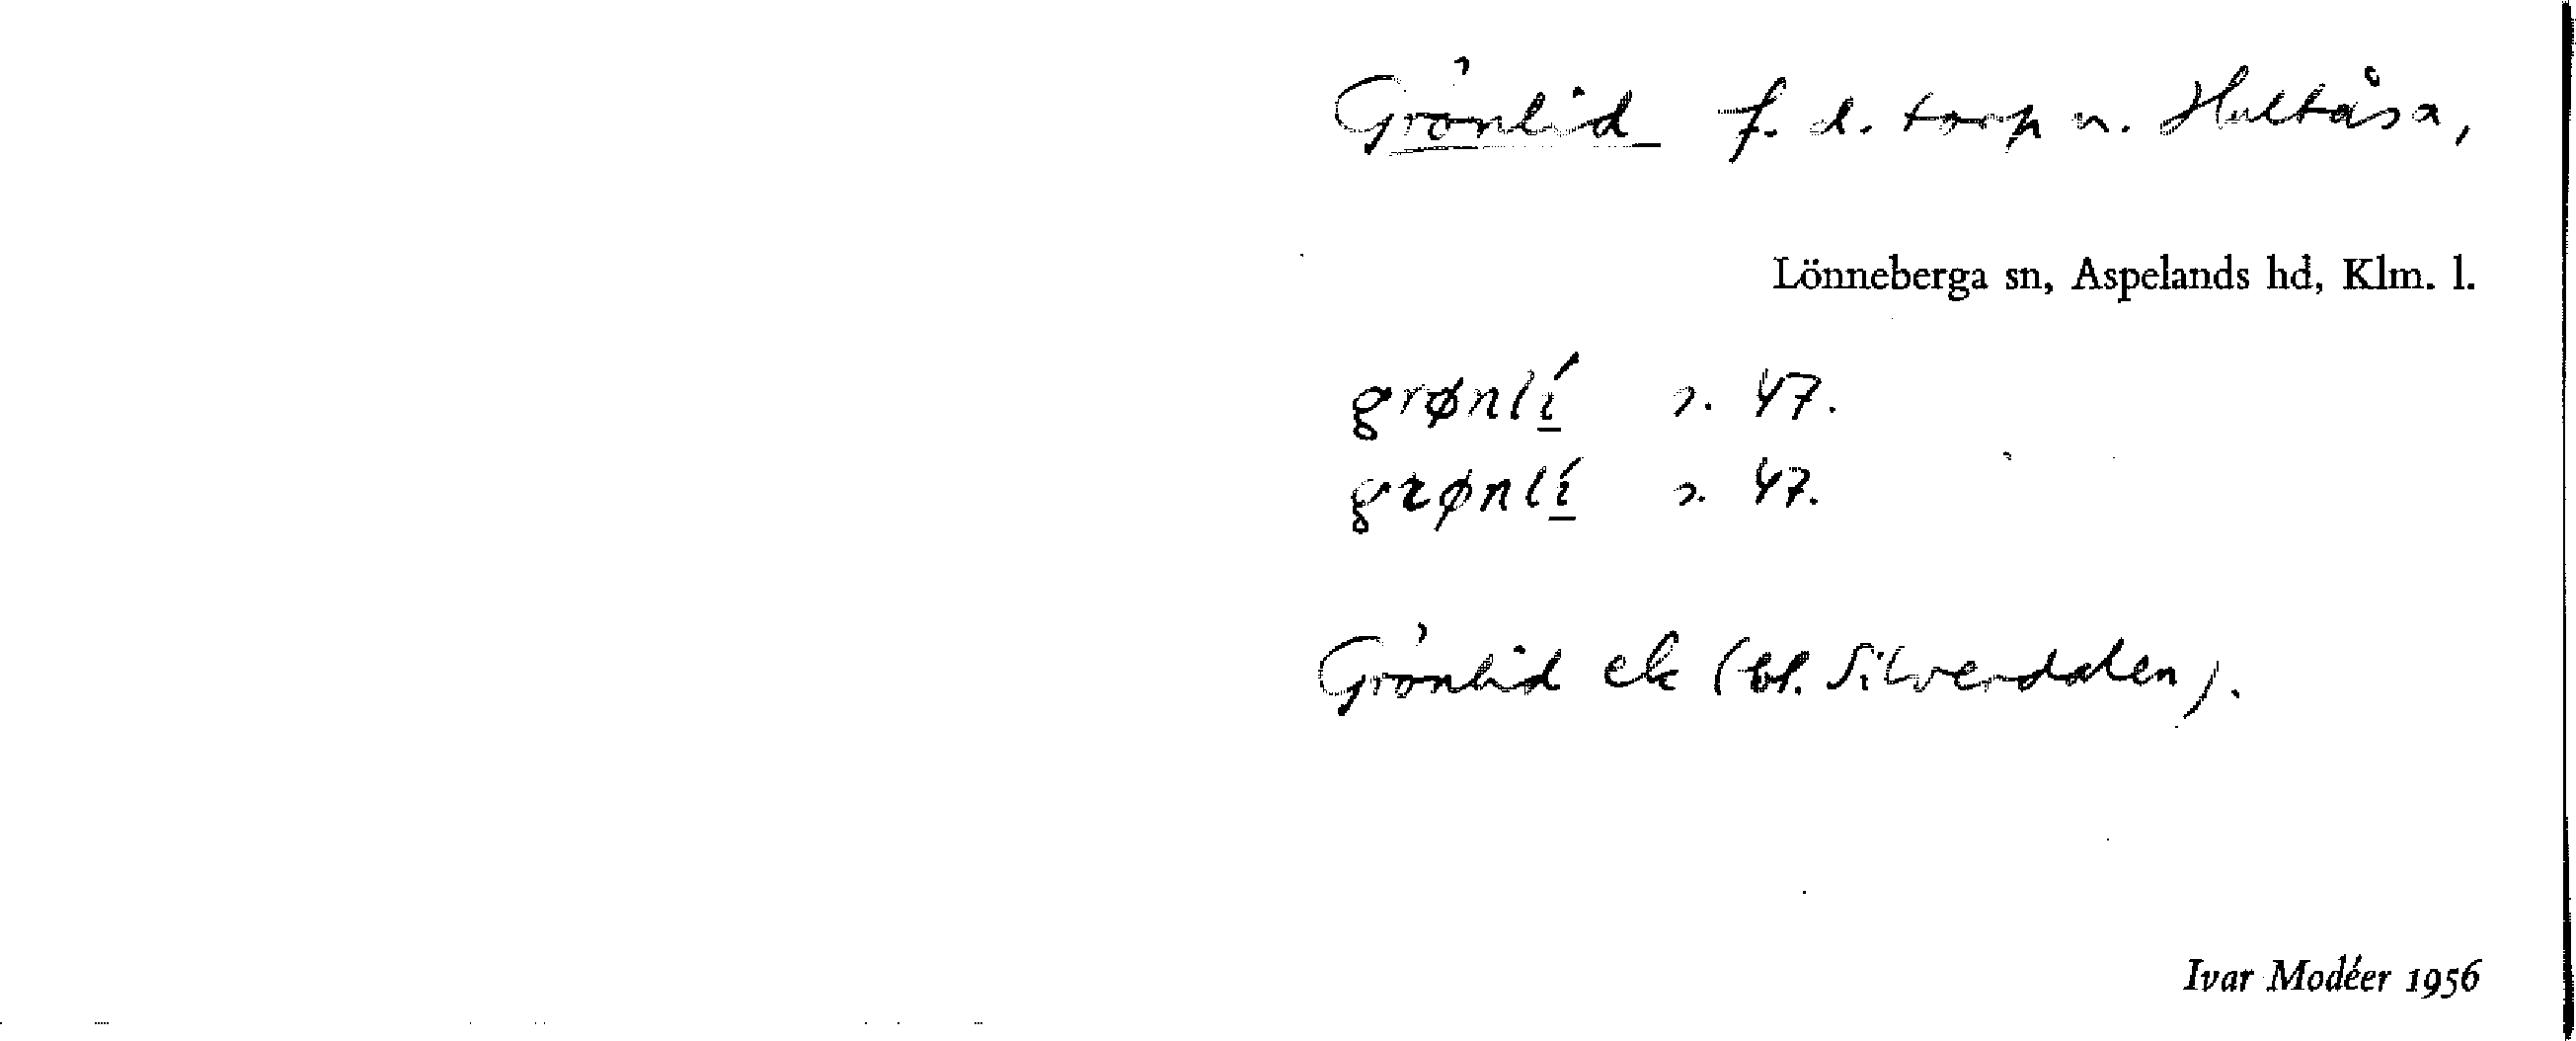 Grönlid f. d. torp n. Hultåsa,
Lönneberga sn, Aspelands hd, Klm. l.
grønlí s. 47.
grønlí s. 47.
Grönlid ek (bl. Silverdalen).
Ivar Modéer 1956